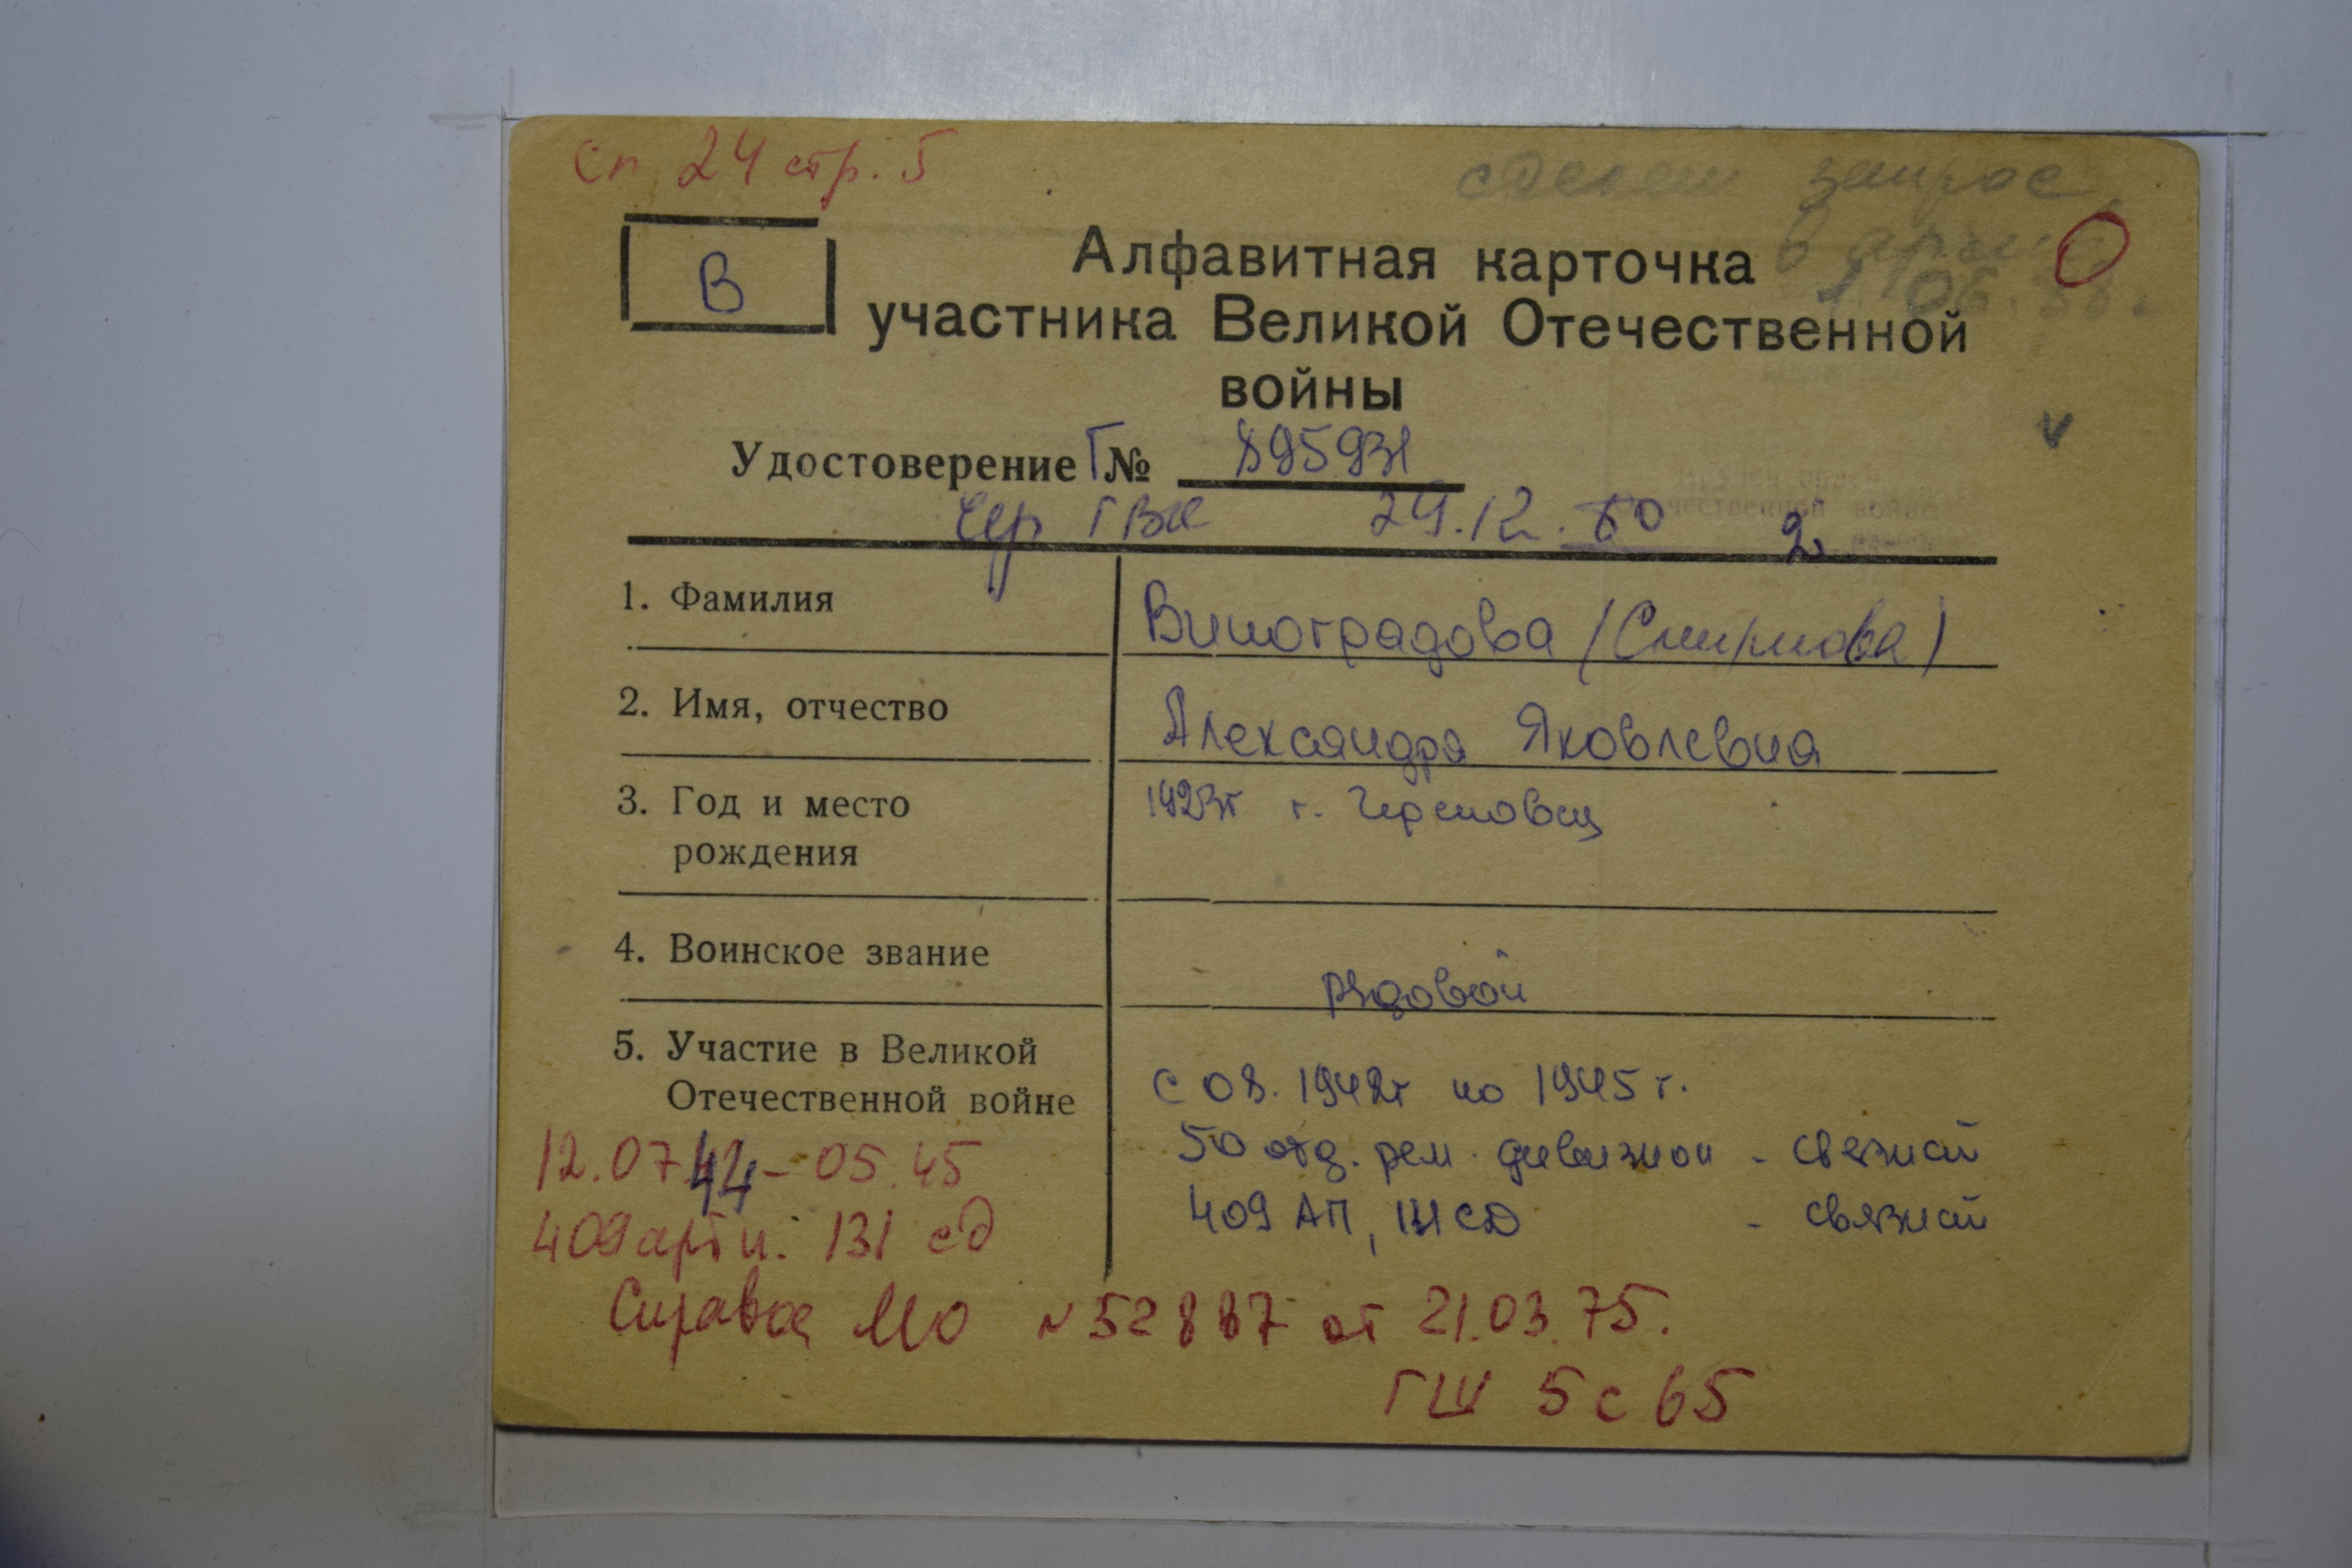 Сп 24 стр. 5
сделан запрос
в архив
06.88 г
В
О
Алфавитная карточка
участника Великой Отечественной
войны
Удостоверение Г № 895931
Чер ГВК 29.12.80 г.
1. Фамилия Виноградова (Смирнова)
2. Имя, отчество Александра Яковлевна
3. Год и место 1923г г. Череповец
рождения
4. Воинское звание рядовой
5. Участие в Великой
Отечественной войне с 08. 1942г по 1945 г.
50 отд. рем. дивизион - связист
409 АП, 131 СД - связист
12.07.44 - 05.45
409 арт п. 131 сд
Справка МО № 52887 от 21.03.75.
ГШ 5 с 65